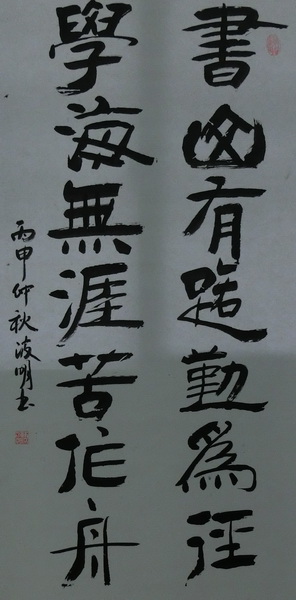 書山有路勤為徑
學海無涯苦作舟
丙申仲秋波明书